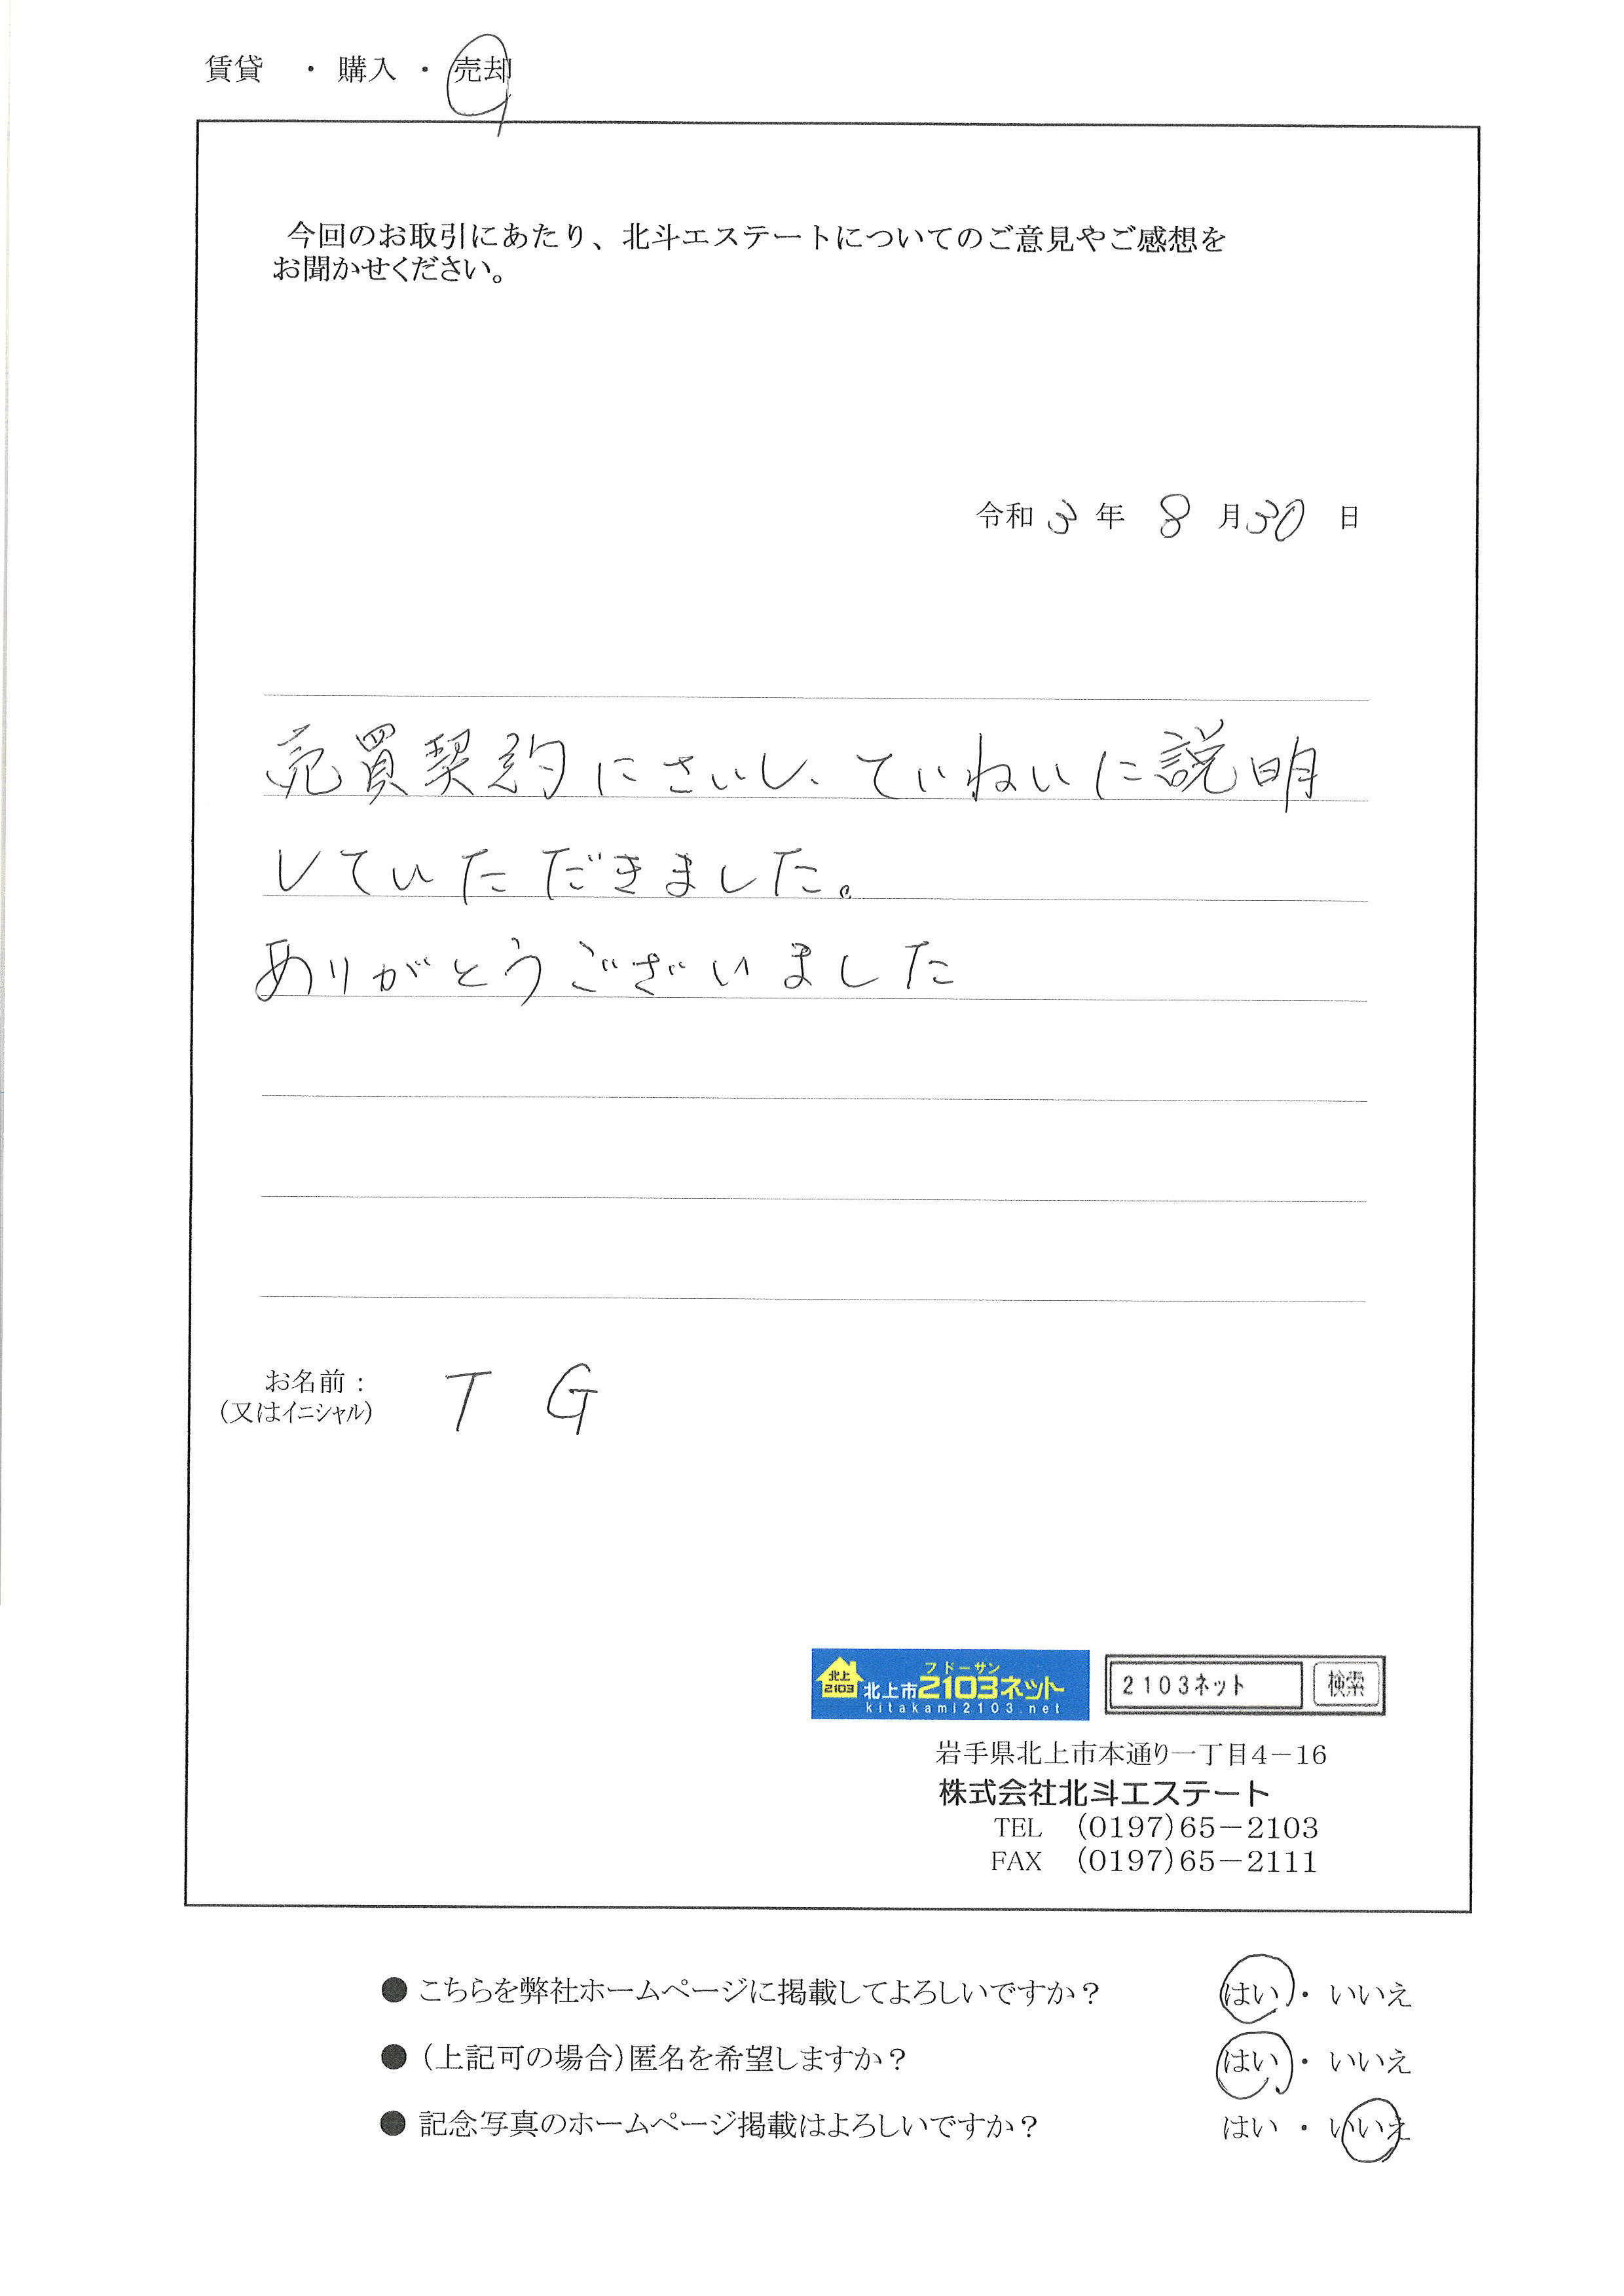 賃貸 ・ 購入 ・ 売却
今回のお取引にあたり、北斗エステートについてのご意見やご感想を
お聞かせください。
令和 3 年 8 月 30 日
売買契約にさいし、ていねいに説明
していただきました。
ありがとうございました
お名前：
（又はイニシャル）
T G
北上
2103
フドーサン
北上市2103ネット
kitakami2103.net
2103ネット 検索
岩手県北上市本通り一丁目4－16
株式会社北斗エステート
TEL （0197）65－2103
FAX （0197）65－2111
● こちらを弊社ホームページに掲載してよろしいですか？ はい ・ いいえ
● （上記可の場合）匿名を希望しますか？ はい ・ いいえ
● 記念写真のホームページ掲載はよろしいですか？ はい ・ いいえ